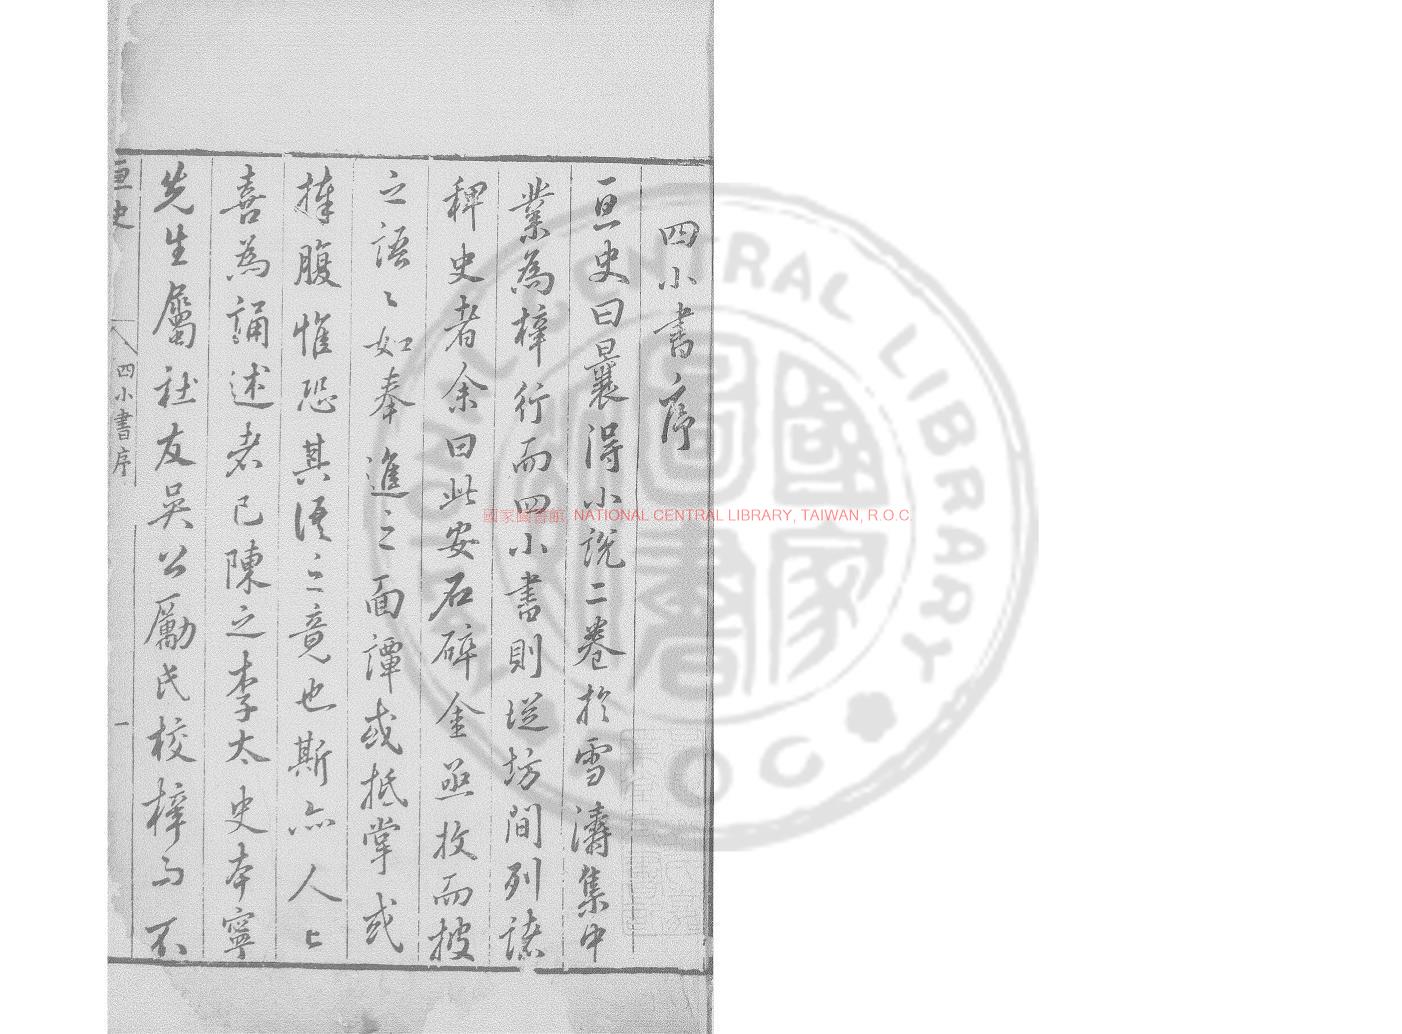 四小書序
亘史曰曩得小說二卷於雪濤集中
業為梓行而四小書則從坊間列諸
稗史者余曰此安石碎金亟收而披
之語〻如奉進之面譚或抵掌或
捧腹惟恐其語之竟也斯亦人〻
喜為誦述者已陳之李太史本寧
先生屬社友吳公勵氏校梓而不
亘史
四小書序
一
國家圖書館, NATIONAL CENTRAL LIBRARY, TAIWAN, R.O.C.
NATIONAL CENTRAL LIBRARY
R.O.C.
國家圖書